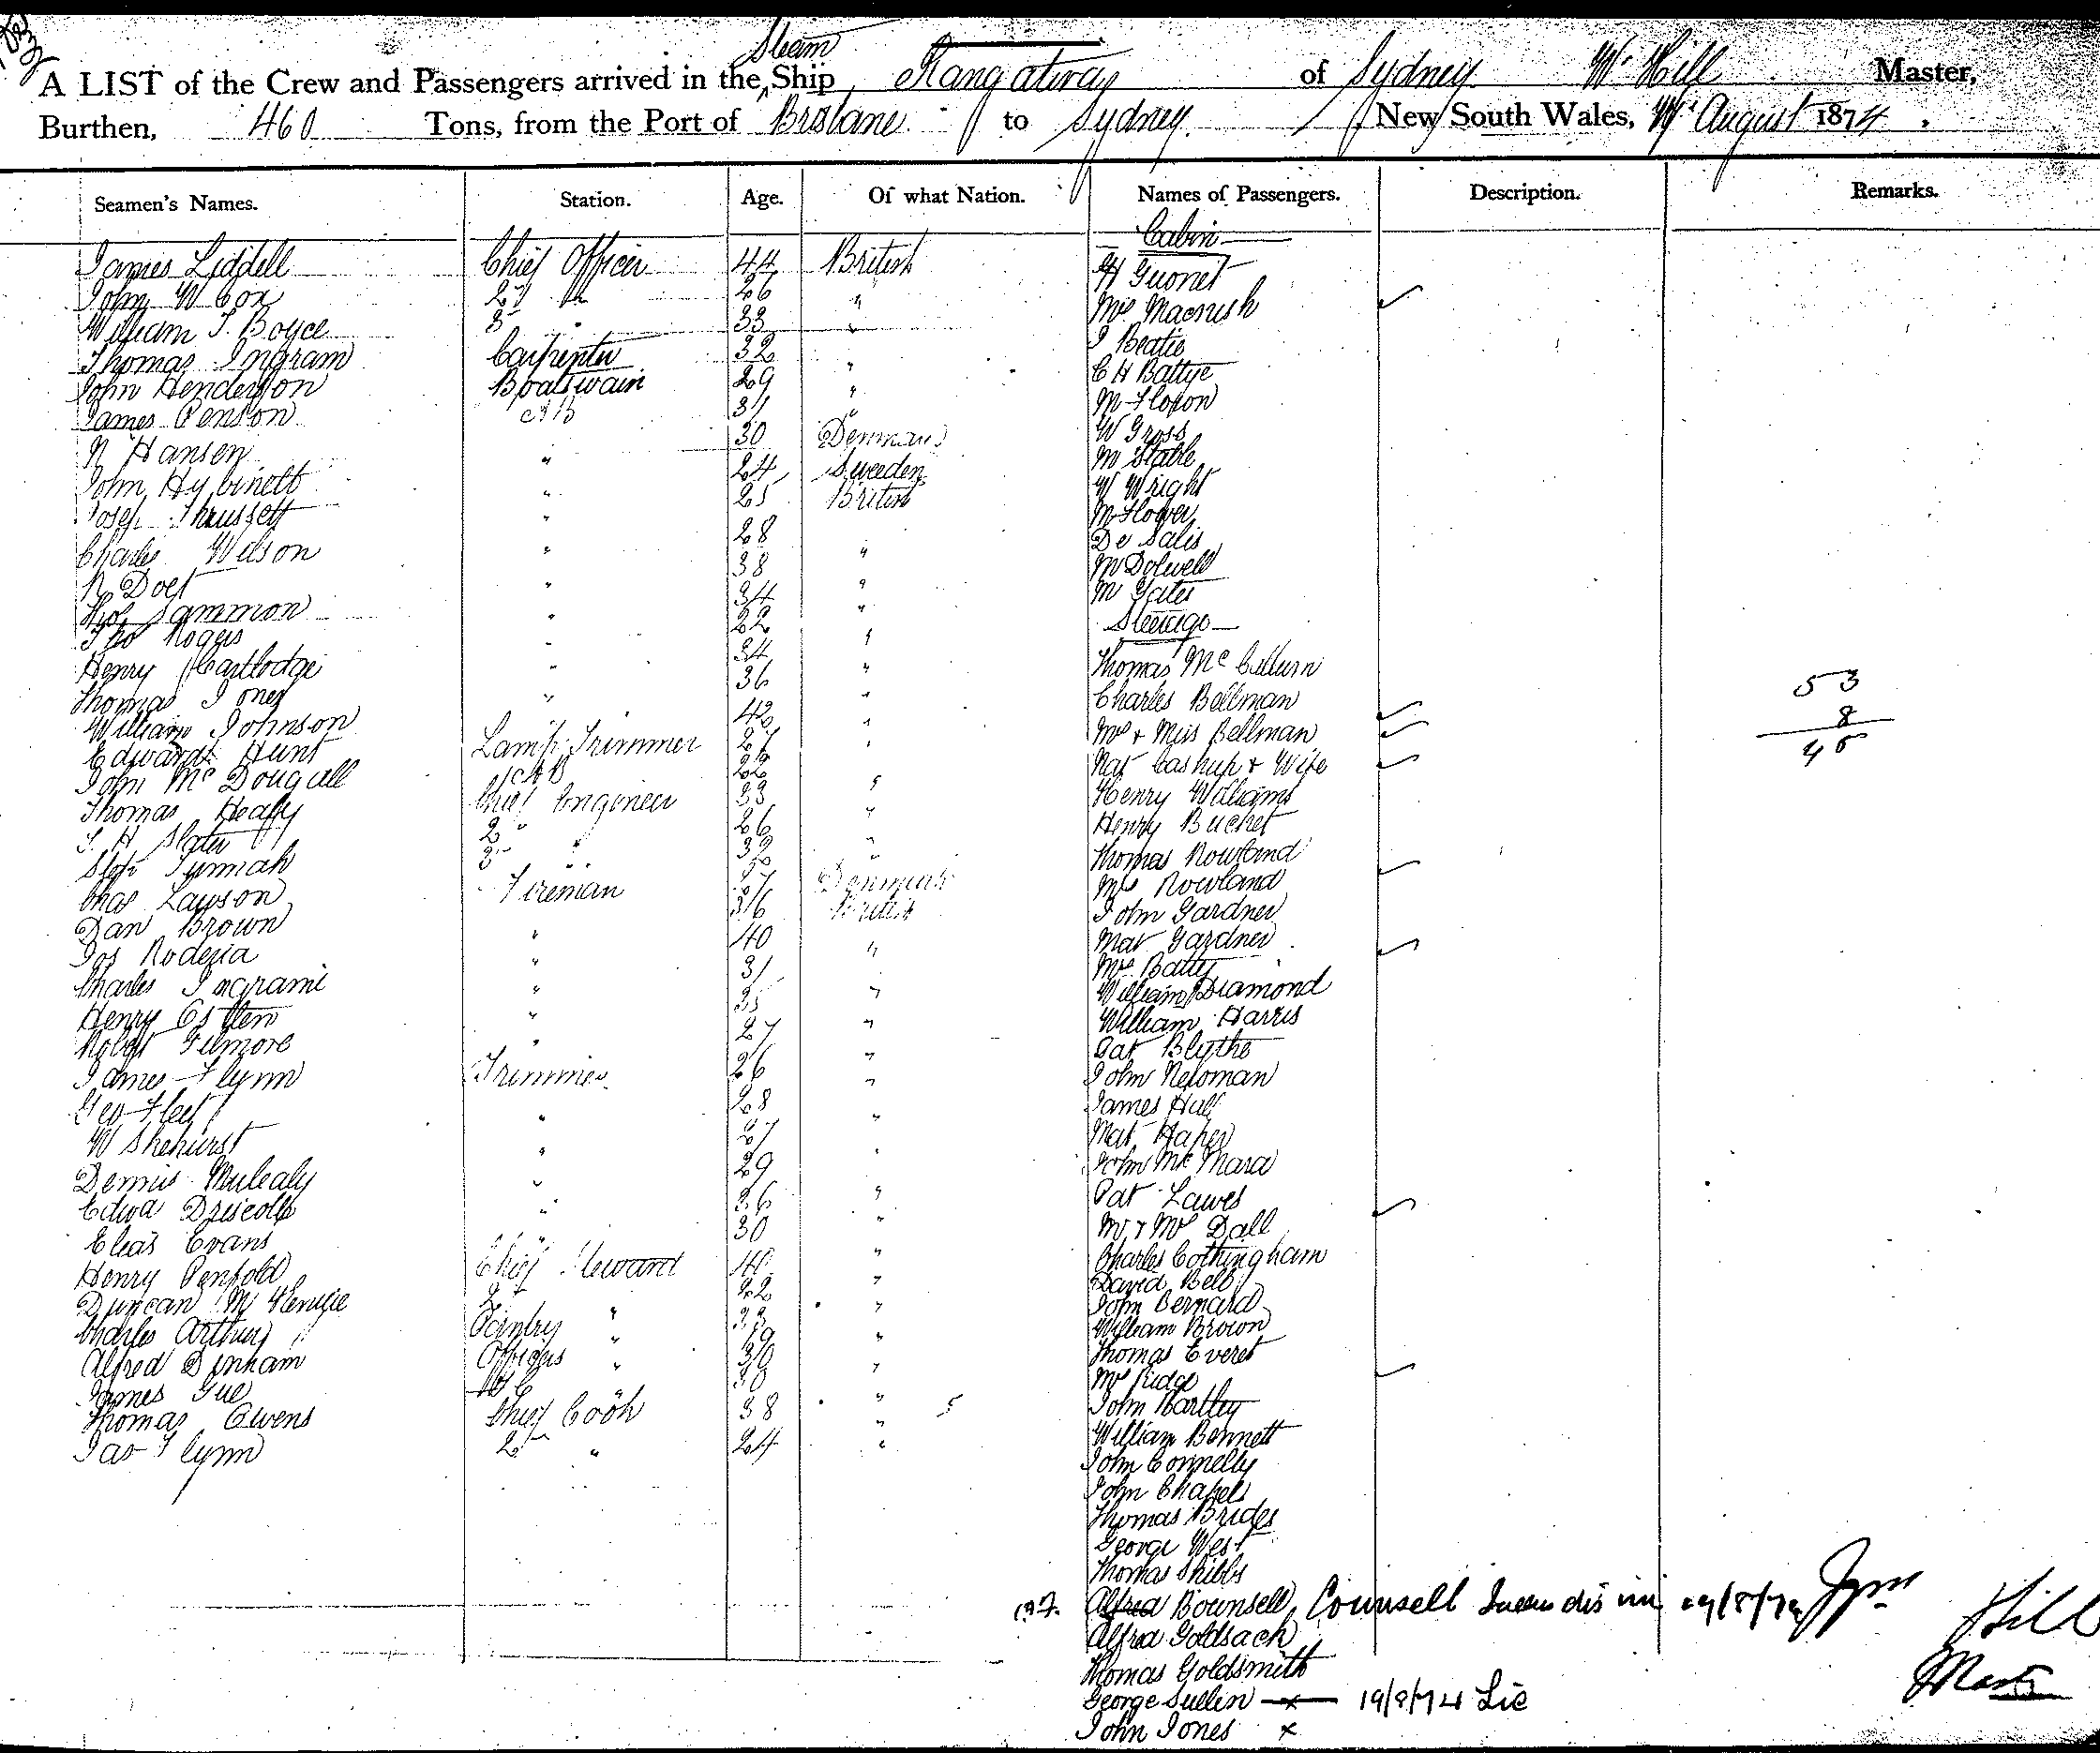 Steam
A LIST of the Crew and Passengers arrived in the Ship Rangatira of Sydney W Hill Master,
Burthen, 460 Tons, from the Port of Brisbane to Sydney New South Wales, August 1874.
Seamen's Names. Station. Age. Of what Nation. Names of Passengers. Description. Remarks.
Cabin
James Liddell Chief Officer 44 British H Guonet
John W Cox 2d " 26 " Mrs Macnish
William T. Boyce 3 " 33 " J Beatie
Thomas Ingram Carpenter 32 " C H Battye
John Henderson Boatswain 29 "
James Penson AB 31 " W Gross
N Hansen " 30 Denmark M Stable
John Hybinett " 24 Sweden W Wright
Josep Thrussett " 25 British M Flower
Charles Wilson " 28 De Salis
R Doel " 38 " M Dolwell
Sammon " 34 " M Yates
Steerage
Tho Rogers " 22 "
Henry Cartlodge " 34 " Thomas Mc Cullum
Thomas Jones " 36 " Charles Bellman 53
William Johnson " 42 " Mrs & Miss Bellman 8
Edward Hunt Lamp Trimmer 27 " Nat Cashup & Wife 45
John McDougall AB 22 " Henry Williams
Thomas Heafy Chief Engineer 33 " Henry Buchet
T. H Slater 2 " 26 " Thomas Rowland
Stepn Tunnah 3 " 32 " Mrs Rowland
Chas Lawson Fireman 27 Denmark John Gardner
Dan Brown " 36 British Mat Gardner
Jos Roderia " 40 " Mrs Batty
Charles Ingrame " 31 " William Diamond
Henry " 35 " William Harris
Robert Gilmore " 27 " Pat Blythe
James Flynn Trimmer 26 " John Newman
Geo Fleet " 28 " James Hull
W Shehurst " 27 " Mat Haper
Dennis Mulealy " 29 " John McMara
Edwd Driscoll " 26 " Pat Lawes
Elias Evans " 30 " Mr & Mrs Dall
Henry Penfold Chief Steward 40 " Charles Cottingham
Duncan 2d " 22 " David Bell
Charles Arthur Pantry " 23 " John Bernard
William Brown
Alfred Denham Officers " 19 " Thomas Everet
James Gue " 30 " Mrs Ridge
Thomas Owens Chief Cook 38 " John Hartley
Jas Flynn 2d " 24 " William Bennett
John Connelly
John Chapels
Thomas Brides
George West
Thomas Skibbs
Alfred Bounsell, Counsell 19/8/74
Hill
Alfred Goldsack
Thomas Goldsmith Master
George Sullin x 19/8/74 Lic
John Jones x